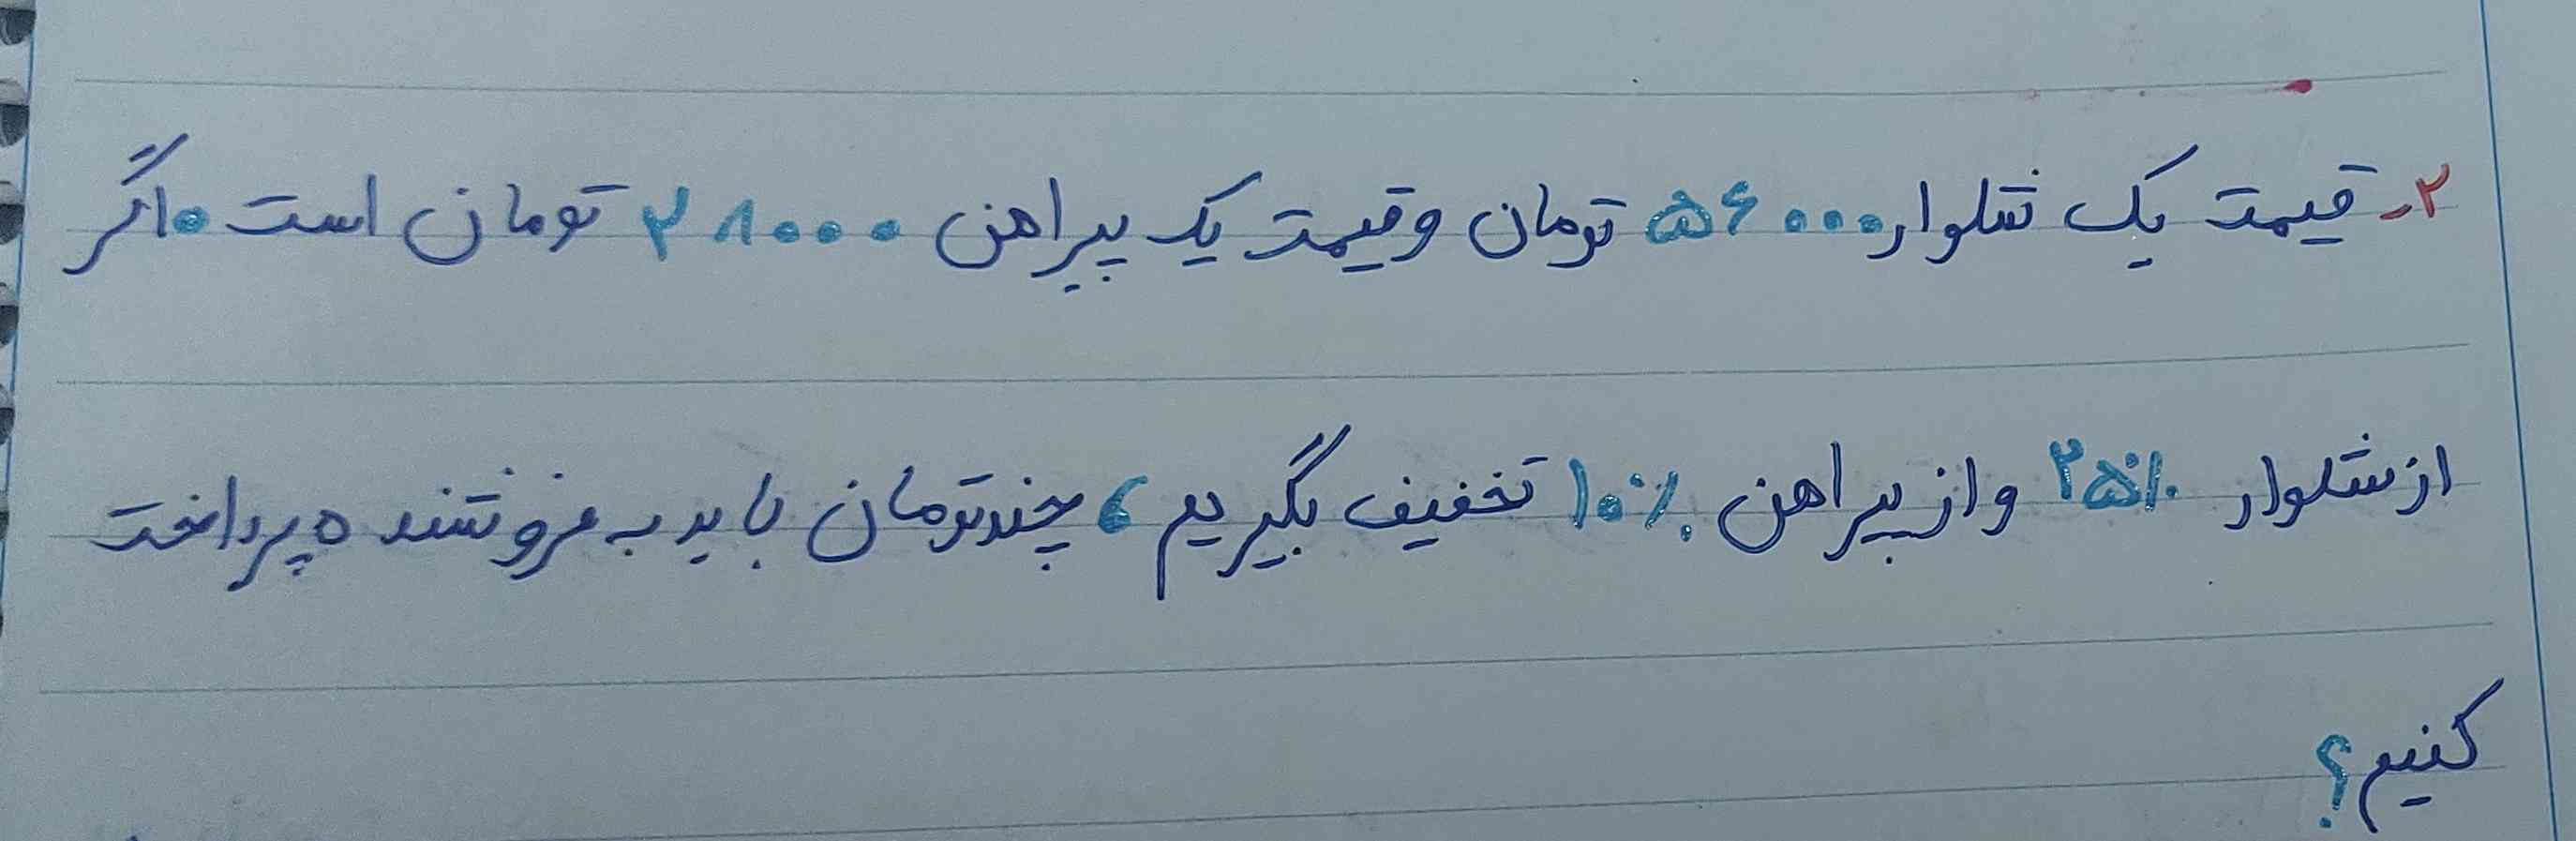 ۲- قیمت یک شلوار ۵۶۰۰۰ تومان و قیمت یک پیراهن ۲۸۰۰۰ تومان است. اگر
از شلوار ۲۵٪ و از پیراهن ۱۰٪ تخفیف بگیریم، چند تومان باید به فروشنده پرداخت
کنیم؟